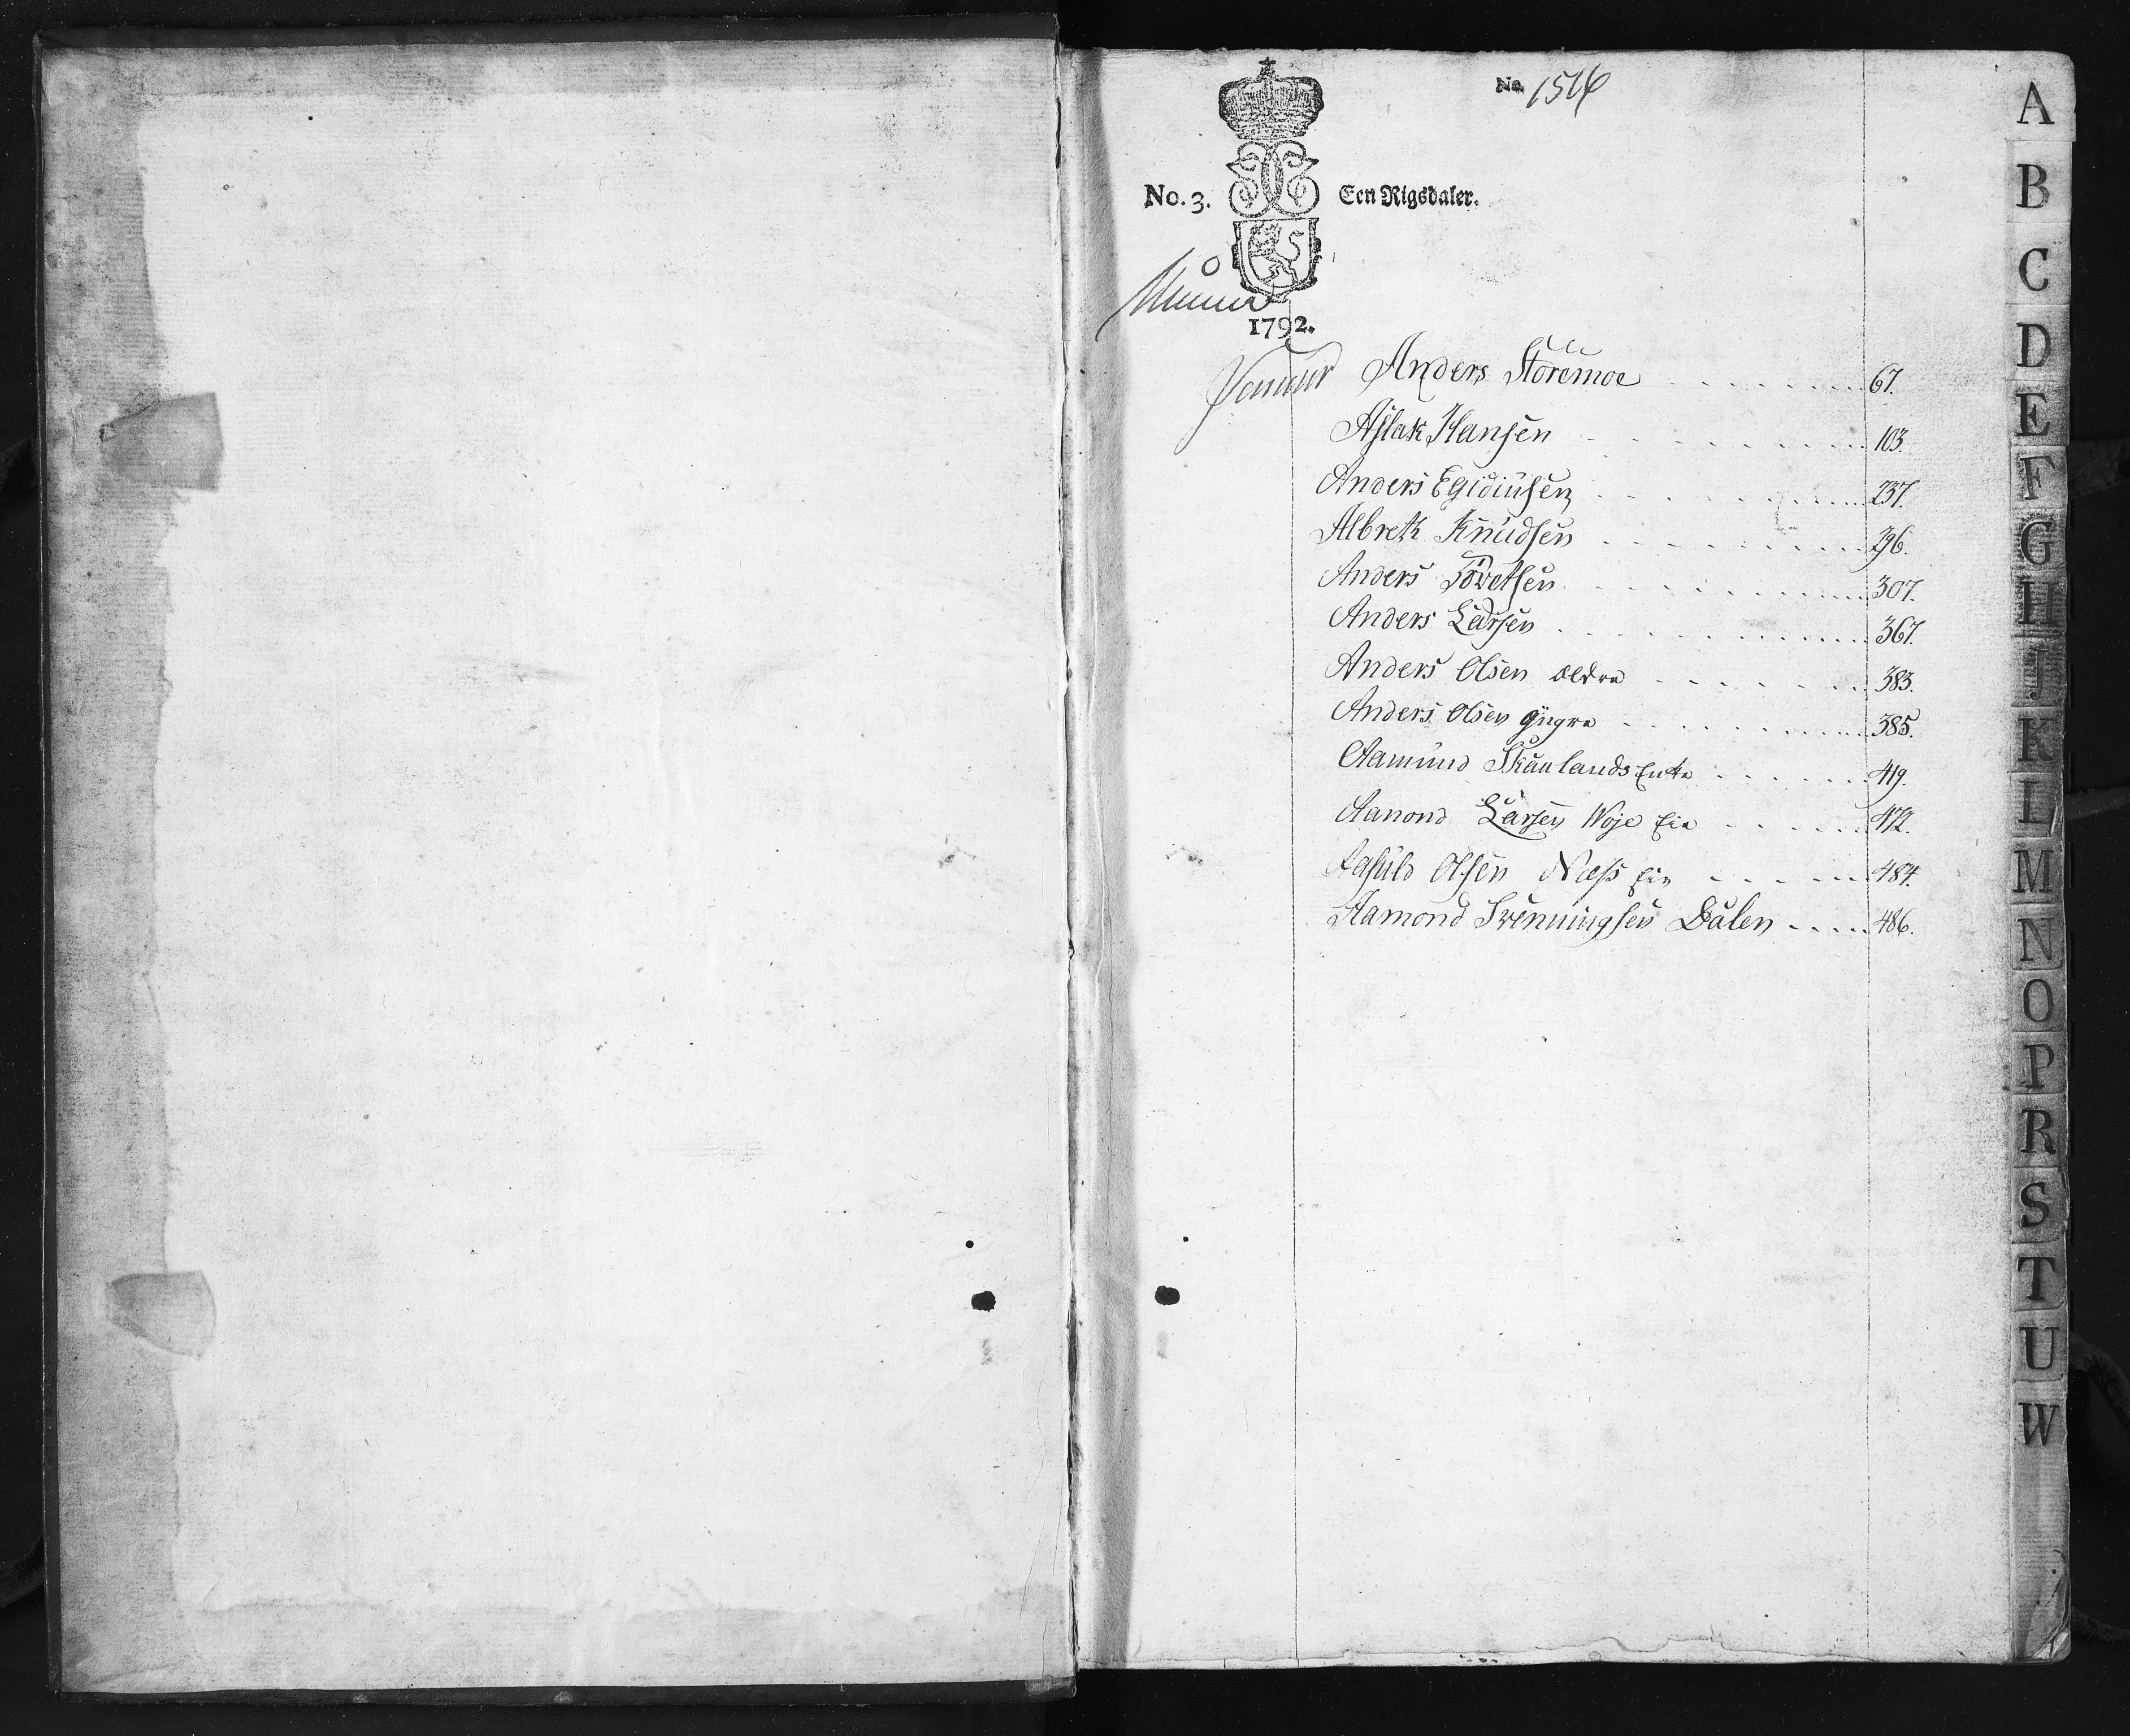 No. 1516
No. 3. Een Rigsdaler.
1792.
Anders Storemoe - - - - - - - 67.
Aslak Hansen - - - - - - - 103.
Anders Egidiusen - - - - - - - 237.
Albreth Knudsen - - - - - - - 296.
Anders Torvetsen - - - - - - - 307.
Anders Larsen - - - - - - - 367.
Anders Olsen ældre - - - - - - - 383.
Anders Olsen yngre - - - - - - - 385.
Aamund Skaulands Enke - - - - - - - 419.
Aanond Larsen Woje - - - - - - - 472.
Aasuld Olsen Næss - - - - - 484.
Aamond Svenningsen Dalen - - - - - 486.
A
B
C
D
E
F
G
H
J
K
L
M
N
O
P
R
S
T
U
W